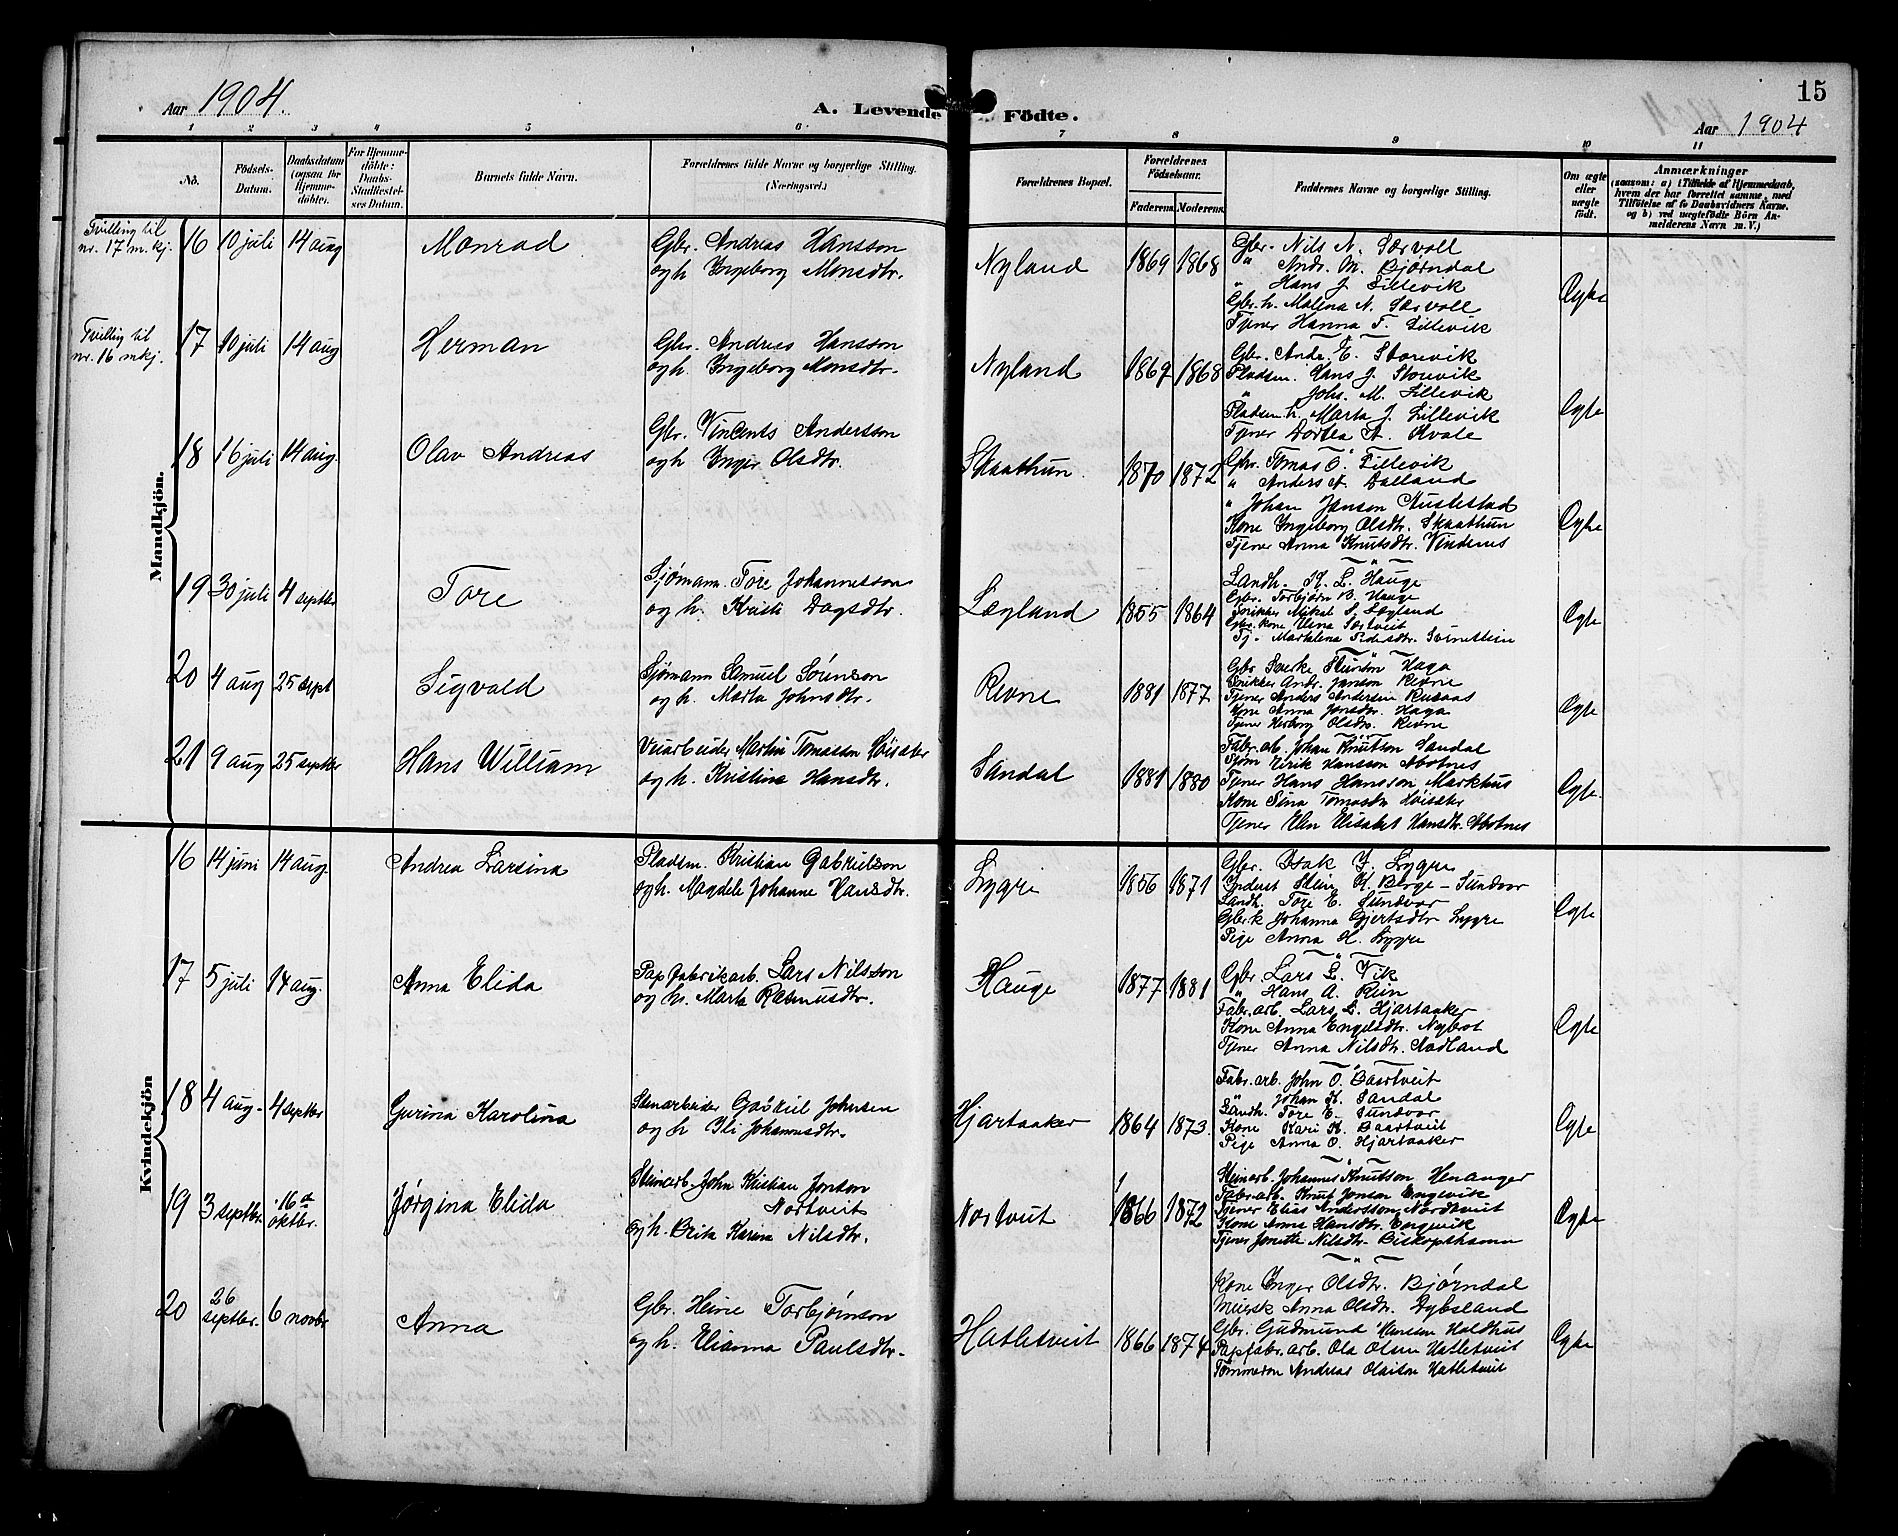 15
Aar 1904.
A. Levende Födte.
Aar 1904
1 2 3 4 5 6 7 8 9 10 11
No.
Födsels-Datum.
Daabsdatum (ogsaa for Hjemme-döbte).
For Hjemme-döbte: Daabs-Stadfæstel-ses Datum.
Barnets fulde Navn.
Forældrenes fulde Navne og borgerlige Stilling. (Næringsvei.)
Forældrenes Bopæl.
Forældrenes Födselsaar.
Faderens. Moderens.
Faddernes Navne og borgerlige Stilling.
Om ægte eller uægte födt.
Anmærkninger
(saasom: a) i Tilfælde af Hjemmedaab, hvem der har forrettet samme, med Tilföielse af to Daabsvidners Navne, og b) ved uægtefödte Börn Anmelderens Navn m. V.)
Mandkjön.
Tvilling til
nr. 17 m. kj.
16 10 juli 14 aug Monrad
Gbr. Andreas Hansson
og h. Ingeborg Monsdtr.
Nyland 1869 1868
Gbr. Nils N. Særvoll
" Andr. M. Bjørndal
" Hans J. Lillevik
Gbr. h. Malena N. Særvoll
Tjener Hanna T. Lillevik
Ægte
Tvilling til
nr. 16 mkj.
17 10 juli 14 aug Herman
Gbr. Andreas Hansson
og h. Ingeborg Monsdtr.
Nyland 1869 1868
Gbr. Andr. E. Storevik
Pladsm. Hans J. Storevik
" Johs. M. Lillevik
Pladsm. h. Marta J. Lillevik
Tjener Dortea A. Kvale
Ægte
18 16 juli 14 aug. Olav Andreas
Gbr. Vincents Andersson
og h Inger Olsdtr.
Skaathun. 1870 1872
Gbr. Tomas O. Lillevik
" Anders A. Dalland
" Johan Janson Austestad
Kone Ingeborg Olsdtr. Skaathun
Tjener Anna Knutsdtr. Vindenes
Ægte
19 30 juli 4 septbr Tore
Sjømann. Tore Johannesson
og h. Kristi Dagsdtr.
Lægland 1855 1864
Landh. K. L. Hauge
Gbr. Torbjørn B. Hauge
Snikker Mikal S. Lægland
Gbr. kone Elena Sørtveit
Tj. Martalena Pedersdtr.
Ægte
20 4 aug 25 sept Sigvald
Sjømann Samuel Sørenson
og h. Marta Johnsdtr.
Revne 1881 1877
Gbr Sverke Steinson Haga
Snikker Andr. Janson Revne
Tjener Anders Andersen Rusaas
Kone Anna Jonsdtr. Haga
Tjener Herborg Olsdtr. Revne
Ægte
21 9 aug 25 septbr Hans William
Veiarbeider Martin Tomasson Høisæter
og h. Kristina Hansdtr.
Sandal 1881 1880
Fabr. arb. Johan Knutson Sandal
Sjøm Eirik Hansson Abotnes
Tjener Hans Hansson Markhus
Kone Sina Tomasdtr Høisæter
Tjener Elen Elisabet Hansdtr. Abotnes
Ægte.
Kvindekjön
16 14 juni 14 aug. Andrea Larsina
Pladsm. Kristian Gabrielson
og h. Magdele Johanne Hansdtr.
Lygre 1856 1871
Gbr. Isak I. Lygre
Inderst Stein K. Berge - Sundvor
Landh. Tore E. Sundvor
Gbr. k Johanna Gjertsdtr Lygre
Pige Anna H. Lygre
Ægte
17 5 juli 14 aug. Anna Elida
Pap fabrikarb Lars Nilsson
og h. Marta Rasmusdtr.
Hauge 1877 1881
Gbr Lars L. Vik
" Hans A. Rein
Fabr. arb. Lars L. Hjartaaker
Kone Anna Engelsdtr. Nybøt
Tjener Anna Nilsdtr. Aadland
Ægte
18 4 aug. 4 septbr Gurina Karolina
Stenarbeider Gabriel Johnsen
og h Eli Johannesdtr.
Hjartaaker 1864 1873.
Fabr. arb. John O. Baartveit
" Johan K. Sandal
Landh. Tore E. Sundvor
Kone Kari K. Baartveit
Pige Anna O. Hjartaaker
Ægte
19 3 septbr. 16de oktbr. Jørgina Elida
Steinarb. John Kristian Jonson
Nortveit
og h. Brita Karina Nilsdtr.
Nortveit 1866 1872
Steinarb. Johannes Knutson Henanger
Fabr. arb. Knut Jonson Engevik
Tjener Elias Andersson Nordtveit
Kone Anna Hansdtr. Engevik
Tjener Jonette Nilsdtr. Biskopshamn
Ægte
20 26 septbr. 6 novbr Anna
Gbr. Heine Torbjørnson
og h. Elianna Paulsdtr.
Hatletveit 1866 1874
Kone Inger Olsdtr. Bjørndal
Meiersk Anna Olsdtr. Dybsland
Gbr. Gudmund Hanson Haldhus
Papfabr. arb. Ola Olsen Hatletveit
Tømmerm Andreas Olaison Hatletveit
Ægte